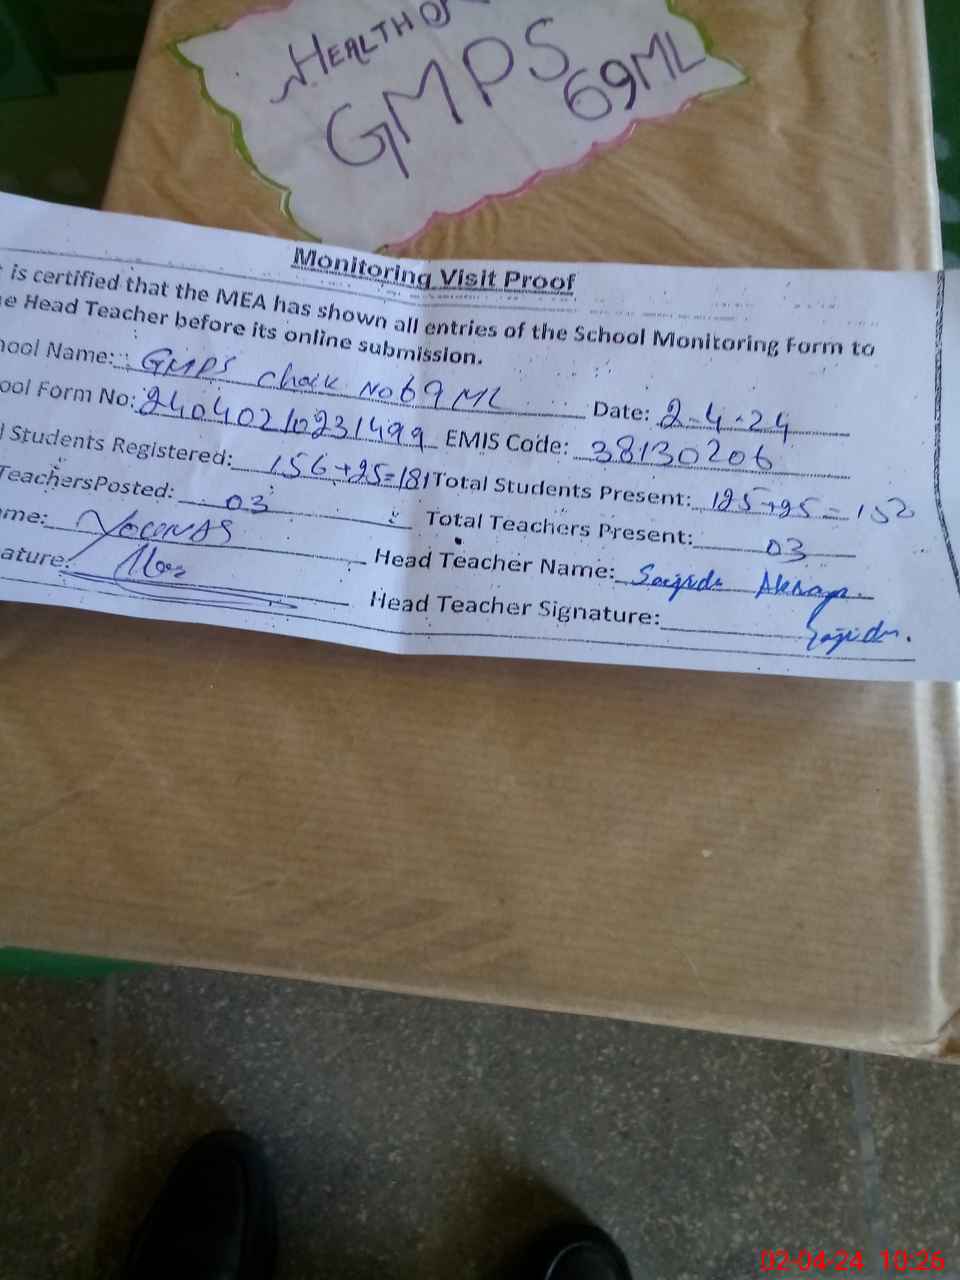 HEALTH
GMPS
69ML
Monitoring Visit Proof
is certified that the MEA has shown all entries of the School Monitoring Form to
e Head Teacher before its online submission.
hool Name: GMPS Chak No 69 ML Date: 2-4-24
ool Form No: 24040210231499 EMIS Code: 38130206
l Students Registered: 156+25=181 Total Students Present: 125+25=150
TeachersPosted: 03 Total Teachers Present: 03
ame: Head Teacher Name: Sajida
ature: Head Teacher Signature: Sajida.
02-04-24 10:26